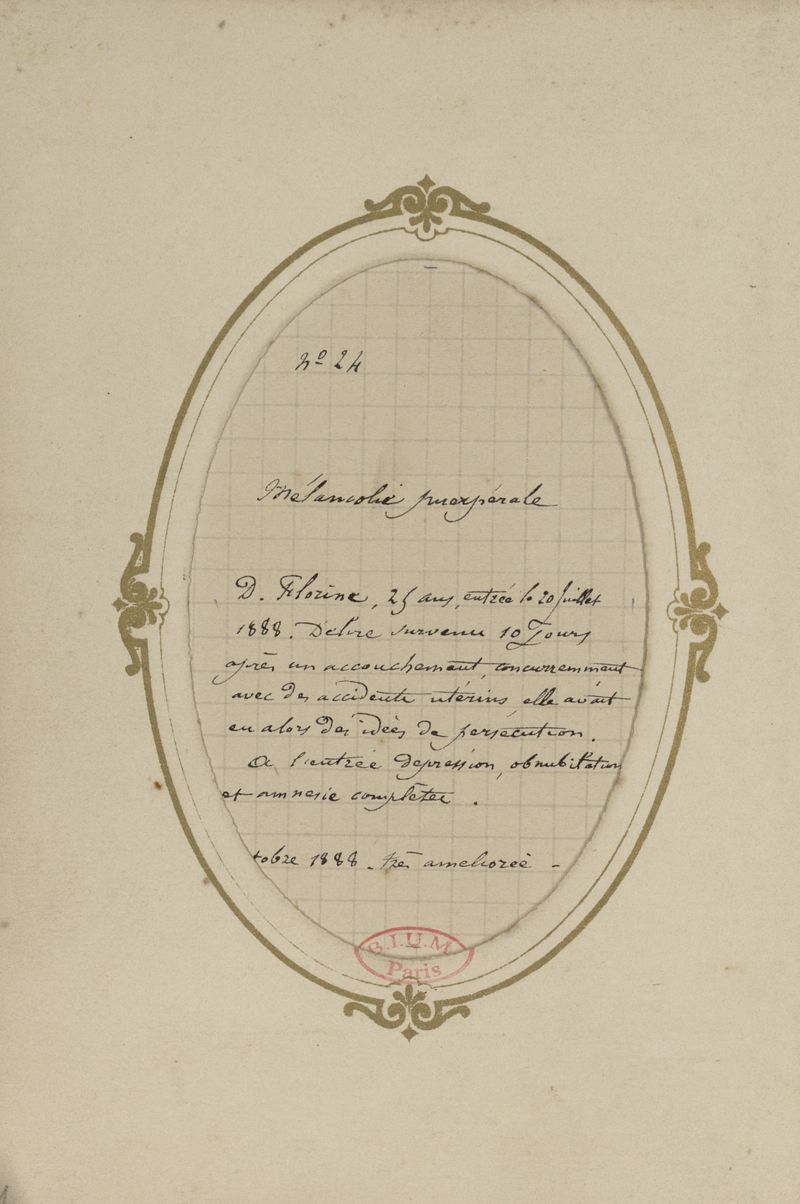 No 24
Mélancolie puerpérale
D. Florine, 25 ans, entrée le 20 Juillet
1888. Délire survenu 10 Jours
après un accouchement, concurremment
avec des accidents utérins, elle avait
eu alors des idées de persécution.
A l'entrée dépression, obnubilation
et amnésie complètes.
tobre 1888 - très améliorée -
B.I.U.M.
Paris